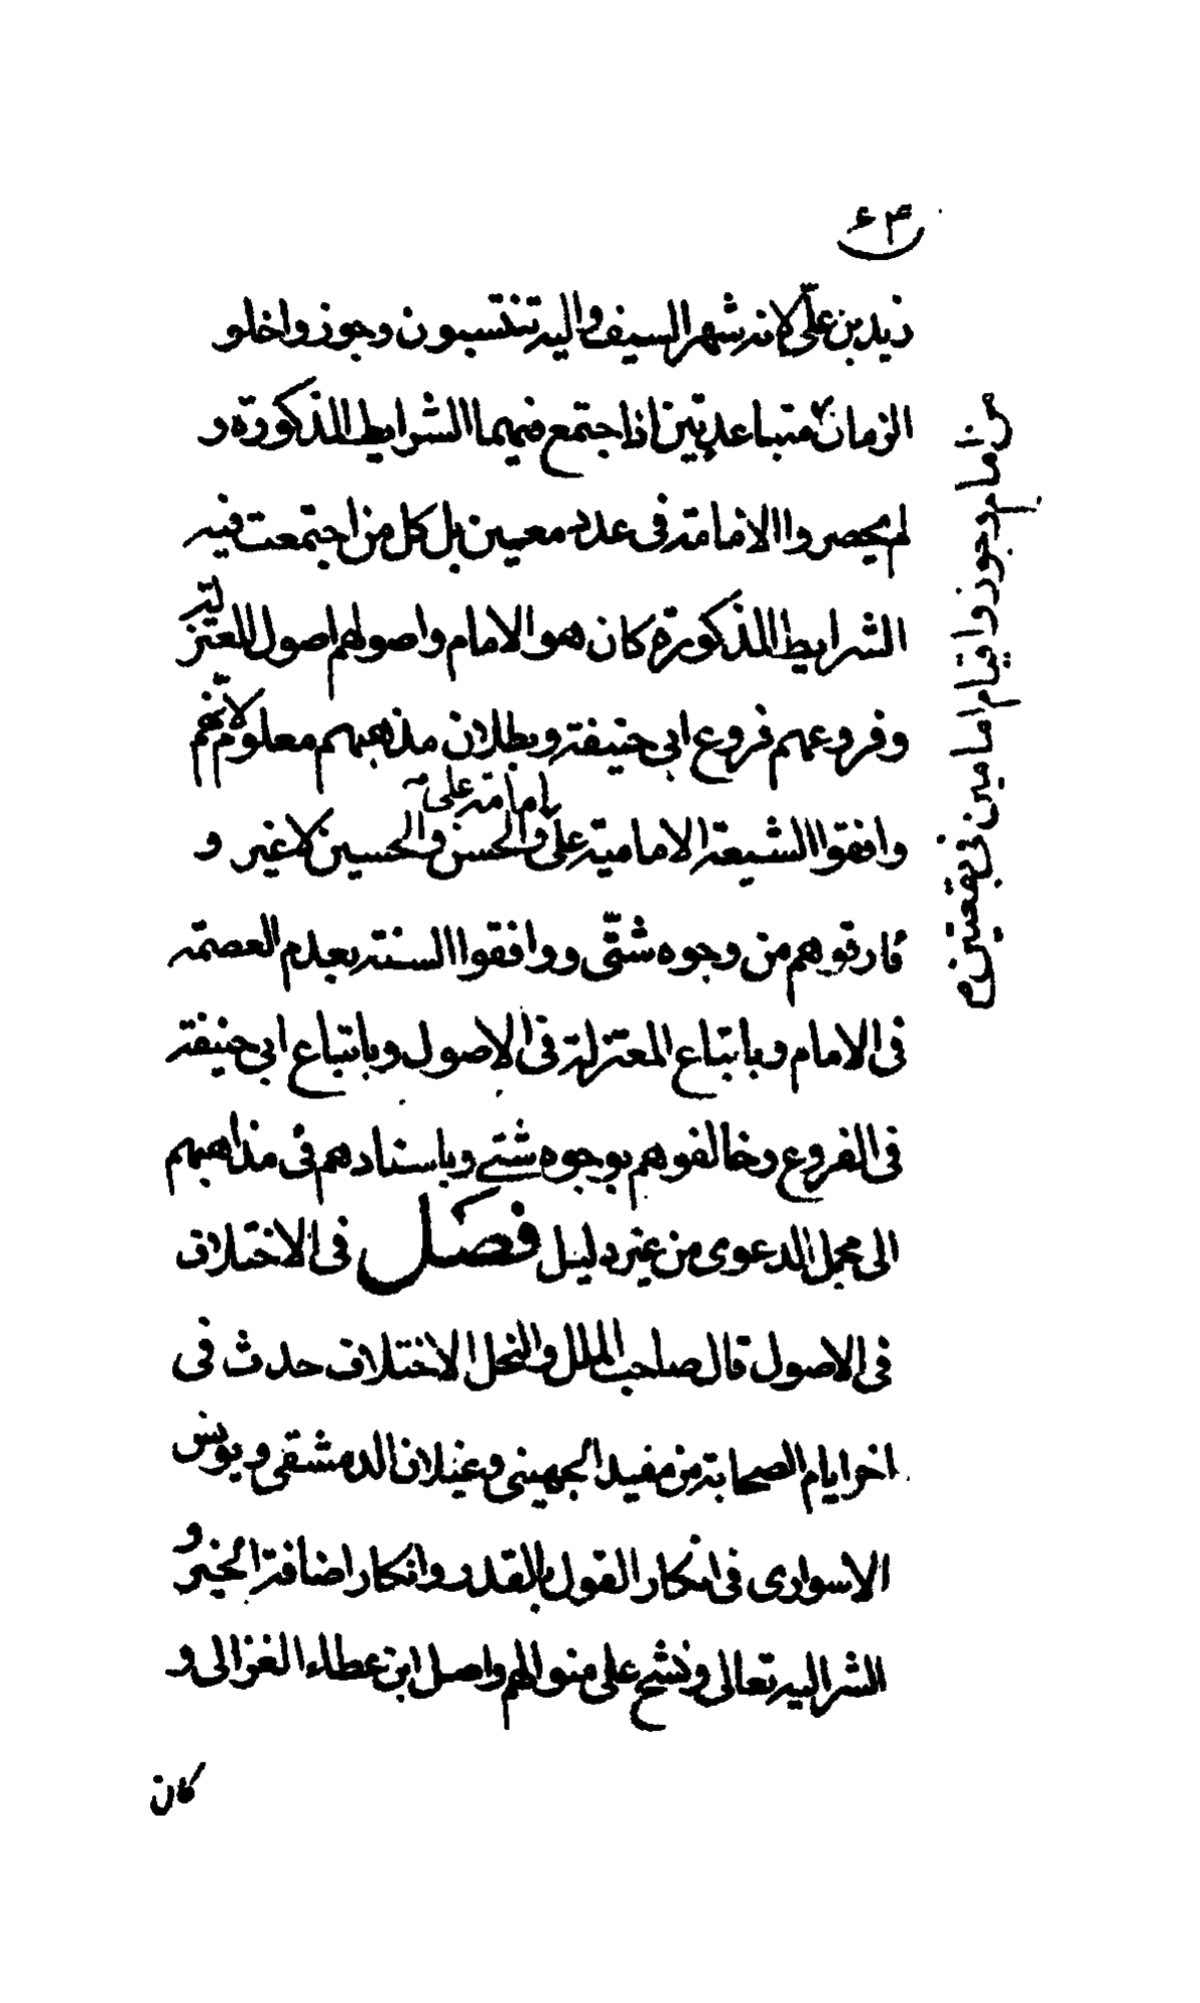 ٤٣
زيد بن علىّ لانه شهر السيف واليه ينتسبون وجوزوا خلو
الزمان متباعدتين اذا اجتمع فيهما الشرايط المذكورة و
لم يحصروا الامامة فى عدد معين بل كل من اجتمعت فيه
الشرايط المذكورة كان هو الامام واصولهم اصول المعتزلة
وفروعهم فروع ابى حنيفة وبطلان مذهبهم معلوم لانّهم
وافقوا الشيعة الامامية بامامة علىّ والحسن والحسين لا غير و
فارقوهم من وجوه شتّى ووافقوا السنة بعدم العصمة
فى الامام وباتباع المعتزلة فى الاصول وباتباع ابى حنيفة
فى الفروع وخالفوهم بوجوه شتى وباسنادهم فى مذاهبهم
الى مجمل الدعوى من غير دليل فصل فى الاختلاف
فى الاصول قال صاحب الملل والنحل الاختلاف حدث فى
اخر ايام الصحابة من مفيد الجهينى وغيلان الدمشقى ويونس
الاسوارى فى انكار القول بالقدر وانكار اضافة الخير و
الشر اليه تعالى ونشج على منوالهم واصل ابن عطاء الغزالى و
كان
من امام وجوزوا قيام امامين فى بقعتين م